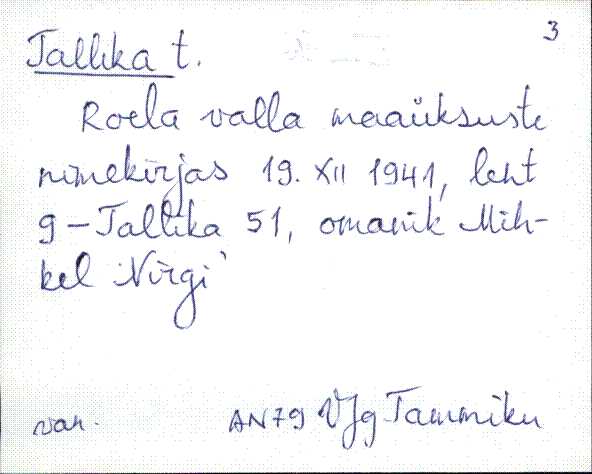 3
Tallika t.
Roela valla maaüksuste
nimekirjas 19. XII 1941, leht
9 - Tallika 51, omanik Mih-
kel Nirgi
van. AN79 VJg Tammiku